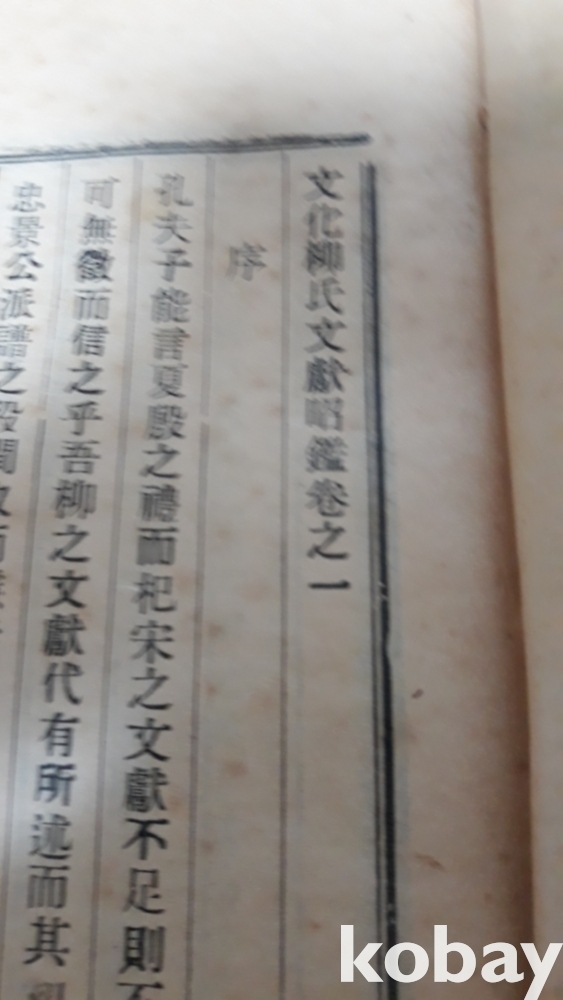 文化柳氏文獻昭鑑卷之一
序
孔夫子能言夏殷之禮而杞宋之文獻不足則不
可無徵而信之乎吾柳之文獻代有所述而其
忠景公派譜之段間
kobay